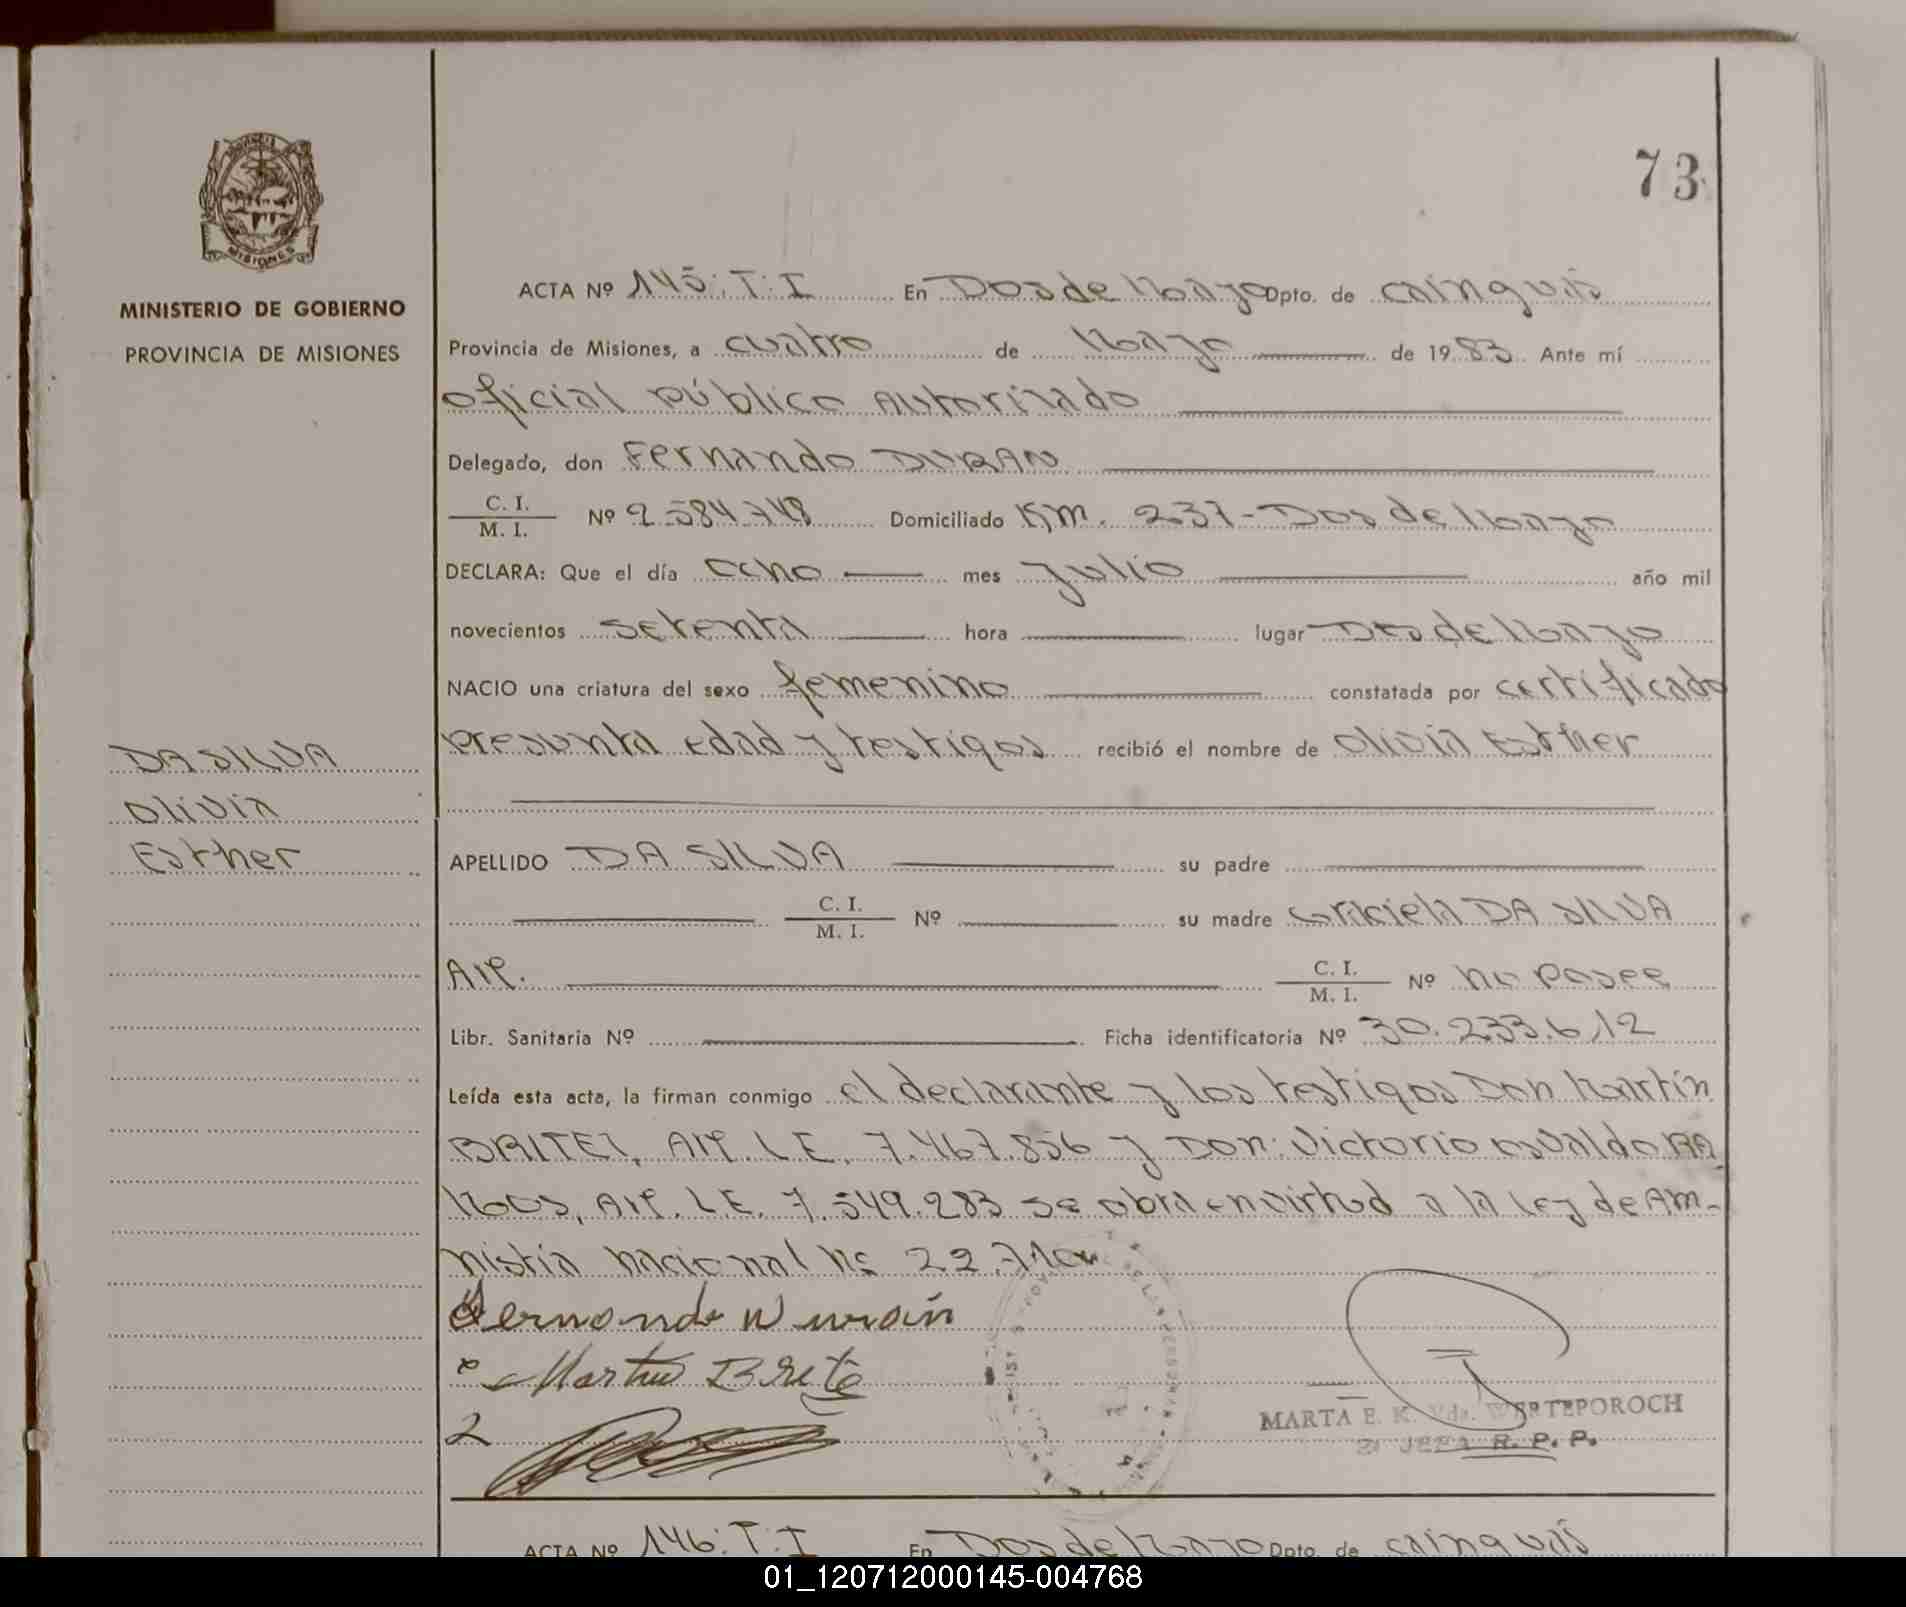 73
MISIONES
MINISTERIO DE GOBIERNO
PROVINCIA DE MISIONES
DA SILVA
Olivia
Esther
ACTA Nº 145:T:I En Dos de Mayo Dpto. de Cainguás
Provincia de Misiones, a cuatro de Mayo de 1983 Ante mí
oficial público Autorizado
Delegado, don Fernando DURAN
C. I.
M. I.
Nº 2.584.748 Domiciliado Km. 237-Dos de Mayo
DECLARA: Que el día ocho mes Julio año mil
novecientos setenta hora lugar Dos de Mayo
NACIO una criatura del sexo femenino constatada por certificado
presunta edad y testigos recibió el nombre de Olivia Esther
APELLIDO DA SILVA su padre
C. I.
M. I.
Nº su madre Graciela DA SILVA
Arg.
C. I.
M. I.
Nº no posee
Libr. Sanitaria Nº Ficha identificatoria Nº 30.233.612
Leída esta acta, la firman conmigo el declarante y los testigos Don Martín
BRITEZ, Arg. L.E. 7.467.856 y Don: Victorio Osvaldo RA
MOS, Arg. L.E. 7.549.283 se obra en virtud a la Ley de Am-
nistía nacional Nº
Fernando Duran
Martin Brite
2
MARTA E. K. Vda. WERTEPOROCH
JEFA R. P. P.
ACTA Nº 146:T:I En Dos de Mayo Dpto. de Cainguás
01_120712000145-004768